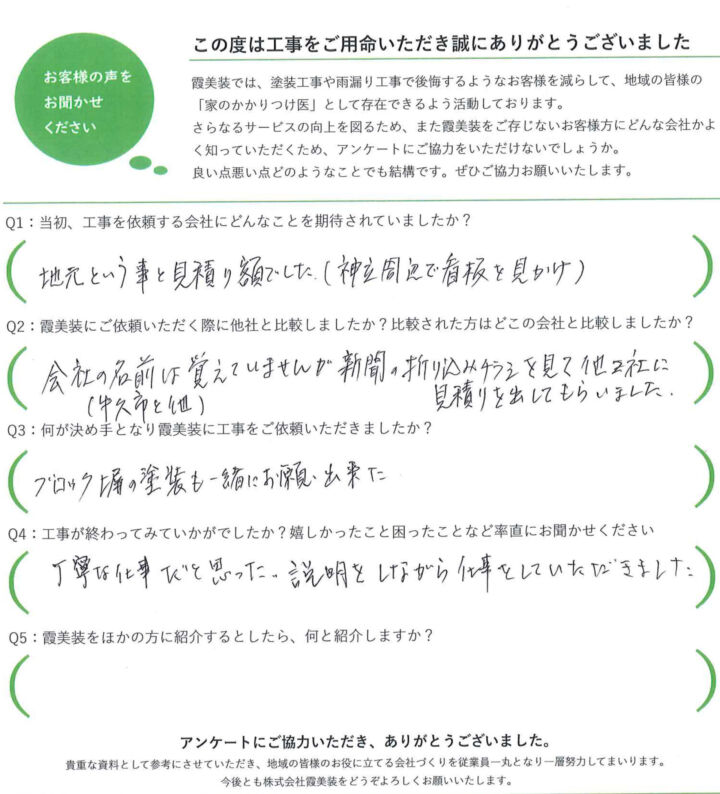 お客様の声を
お聞かせ
ください
この度は工事をご用命いただき誠にありがとうございました
霞美装では、塗装工事や雨漏り工事で後悔するようなお客様を減らして、地域の皆様の
「家のかかりつけ医」として存在できるよう活動しております。
さらなるサービスの向上を図るため、また霞美装をご存じないお客様方にどんな会社かよ
く知っていただくため、アンケートにご協力をいただけないでしょうか。
良い点悪い点どのようなことでも結構です。ぜひご協力お願いいたします。
Q1：当初、工事を依頼する会社にどんなことを期待されていましたか？
地元という事と見積り額でした.(神立周辺で看板を見かけ)
Q2：霞美装にご依頼いただく際に他社と比較しましたか？比較された方はどこの会社と比較しましたか？
会社の名前は覚えていませんが新聞の折り込みチラシを見て他2社に
(牛久市と他)
見積りを出してもらいました.
Q3：何が決め手となり霞美装に工事をご依頼いただきましたか？
ブロック塀の塗装も一緒にお願い出来た
Q4：工事が終わってみていかがでしたか？嬉しかったこと困ったことなど率直にお聞かせください
丁寧な仕事だと思った.. 説明をしながら仕事をしていただきました
Q5：霞美装をほかの方に紹介するとしたら、何と紹介しますか？
アンケートにご協力いただき、ありがとうございました。
貴重な資料として参考にさせていただき、地域の皆様のお役に立てる会社づくりを従業員一丸となり一層努力してまいります。
今後とも株式会社霞美装をどうぞよろしくお願いいたします。